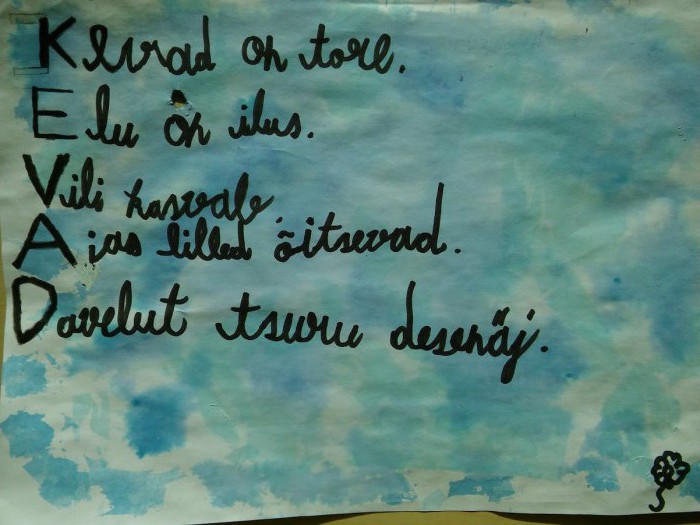 Kevad on tore.
Elu on ilus.
Vili kasvab
Aias lilled õitsevad.
Davelut tsuru desenäj.